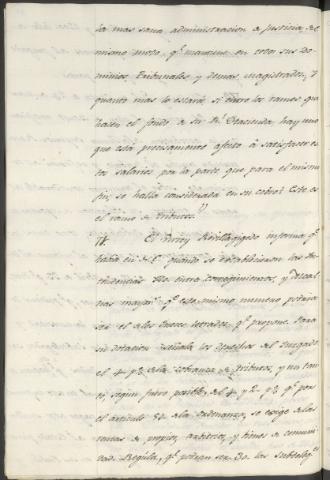 la mas sana administracion de Justicia, del
mismo modo, qᵉ mantiene en todos sus Do-
minios, Tribunales y demas magistrados, Y
quanto mas lo estará si entre los ramos que
hacen el fondo a su Rˡ. Hacienda, hay uno
que está precisamente afecto á satisfacer es-
tos salarios por la parte que para el mismo
fin, se halla considerada en su cobro? Este es
el ramo de tributos.
El Virrey Revillagigedo informa qᵉ
habia en N. E. quando se establecieron las In-
tendencias entre corregimientos, y Alcal-
días mayores qᵉ este mismo numero podria
ser el de los letrados, qᵉ propone. Para
su dotacion señala los derechos del Juzgado
el 4 p% de la cobranza de tributos, y un tan-
to, segun fuere posible, del 4 y 2 p% qᵉ por
el articulo de la ordenanza, se exige de las
rentas de propios, arbitrios, y bienes de comuni-
dad. Regula, qᵉ podran ser 30. los subdeleg.ˢ